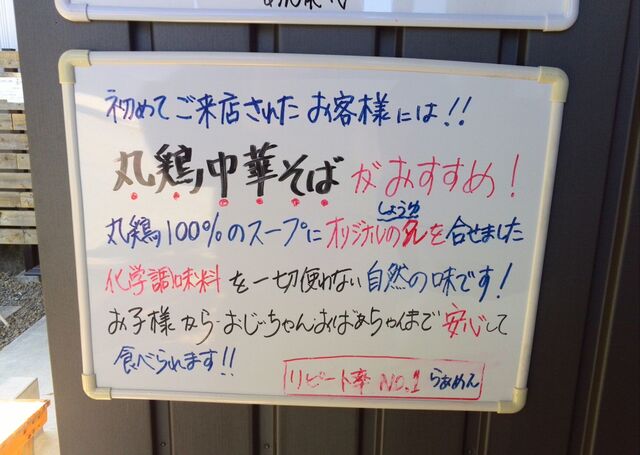 初めてご来店されたお客様には!!
丸鶏中華そばがおすすめ!
しょうゆ
丸鶏100%のスープにオリジナルのタレを合せました
化学調味料を一切使わない自然の味です!
お子様から・おじいちゃん・おばあちゃんまで安心して
食べられます!!
リピート率 NO.1 らぁめん